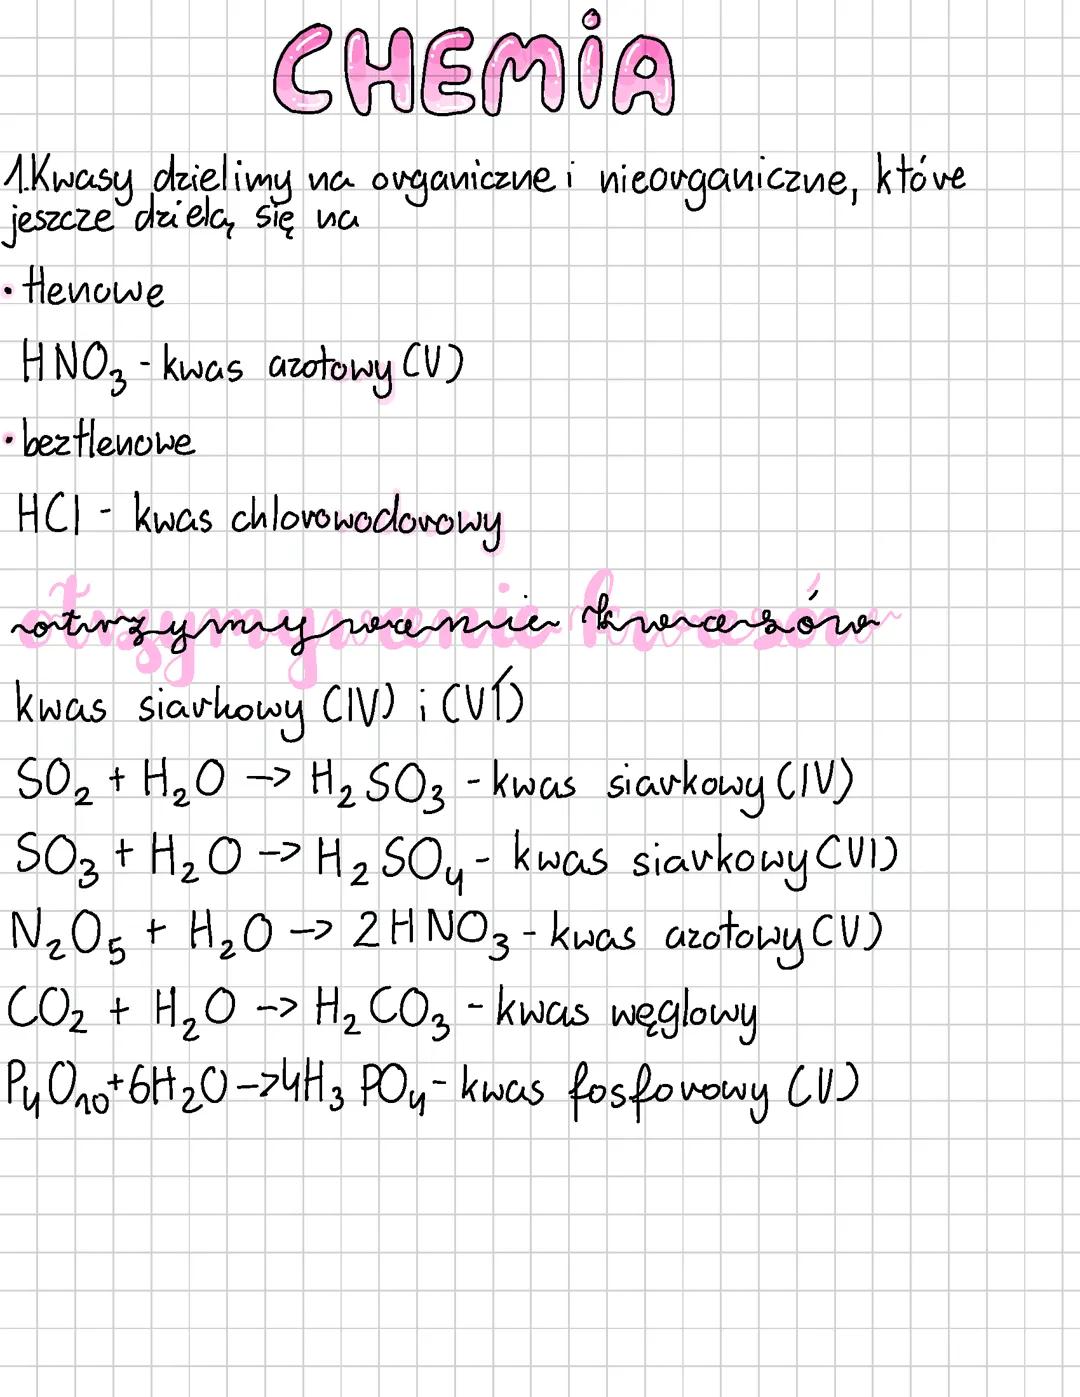 CHEMiA
1.Kwasy dzielimy na organiczne i nieorganiczne, które
jeszcze dzielą się na
• tlenowe
HNO₃ - kwas azotowy (V)
• beztlenowe
HCl - kwas chlorowodorowy
otrzymywanie kwasów
kwas siarkowy (IV) i (VI)
SO₂ + H₂O -> H₂SO₃ - kwas siarkowy (IV)
SO₃ + H₂O -> H₂SO₄ - kwas siarkowy (VI)
N₂O₅ + H₂O -> 2HNO₃ - kwas azotowy (V)
CO₂ + H₂O -> H₂CO₃ - kwas węglowy
P₄O₁₀+6H₂O->4H₃PO₄ - kwas fosforowy (V)